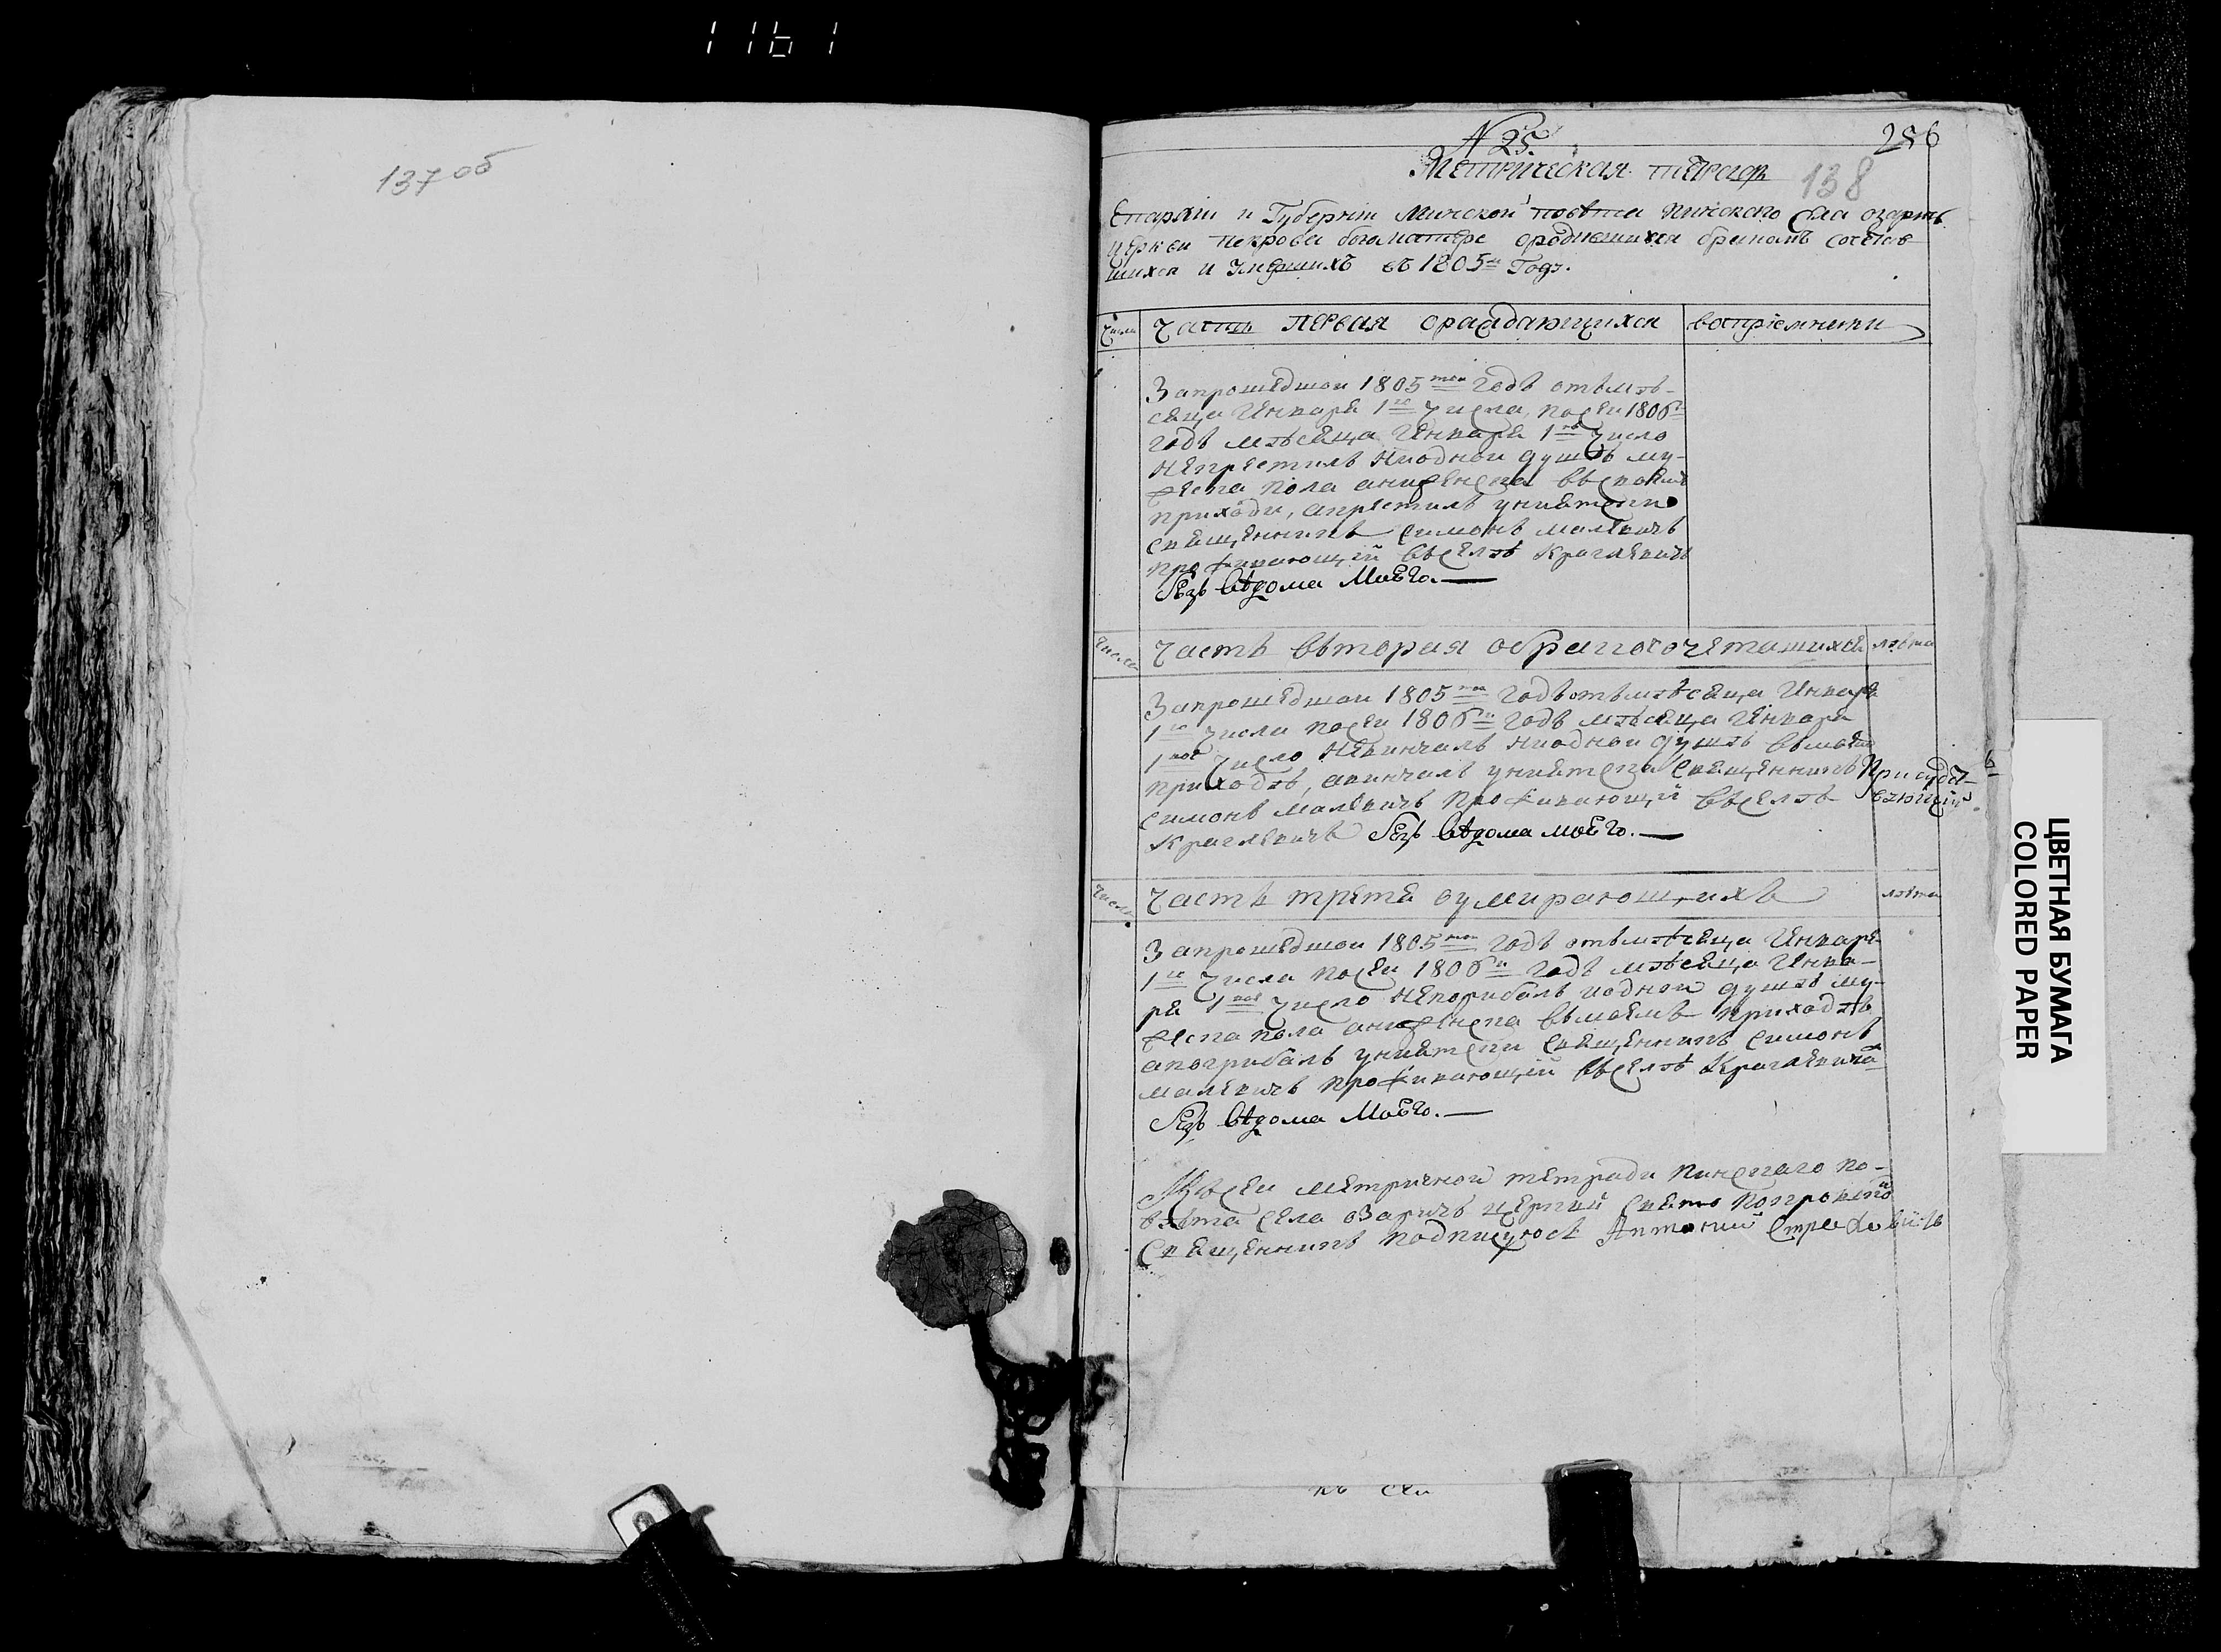 1161
137 об
N 25.
286
Метрическая тетрадь
138
Епархіи и Губерніи Минской повѣта Пинского Села озаричъ
церкви покрова богоматере ородившихся бракомъ сочетав
шихся и умершихъ въ 1805м Году.
Числа
Часть первая ораждающихся
воспріемники
Запрошедшои 1805той годъ отъмѣ-
сеца Генваре 1го числа, посеи 1806й
годъ мѣсеца Генваре 1ое число
некрестилъ ниодной душѣ му-
жеска пола анеженска
приходи, акрестилъ униатски
священникъ Симонъ малевичъ
проживающій Вселѣ Краглевичъ
безъ вѣдома Моего.
Числа
Часть вторая обракосочетавшихсе
лѣта
Запрошедшои 1805той годъ отъмѣсеца Генваре
1го числа посеи 1806й годъ мѣсеца Генваре
1ное число невинчалъ ниодной душѣ вмоем
приходѣ, авинчалъ униатски священникъ
Симонъ малевичъ проживающій Вселѣ
Краглевичъ безъ вѣдома моего.
Числа
Часть третя оумирающихъ
лѣта
Запрошедшои 1805той годъ отъмѣсеца Генваре
1го числа посеи 1806й годъ мѣсеца Генва-
ре 1ное число непогрибалъ иодной душѣ му-
жеска пола анеженска вмоемъ приходѣ
апогрибалъ униатски священникъ Симонъ
малевичъ проживающій Вселѣ Краглевича
безъ вѣдома Моего.
Ксеи метричной тетради Пинскаго по-
вѣта села оЗаричъ церкви Свято Покровской
Священникъ подписуюсь Антоній
къ сеи
ЦВЕТНАЯ БУМАГА
COLORED PAPER